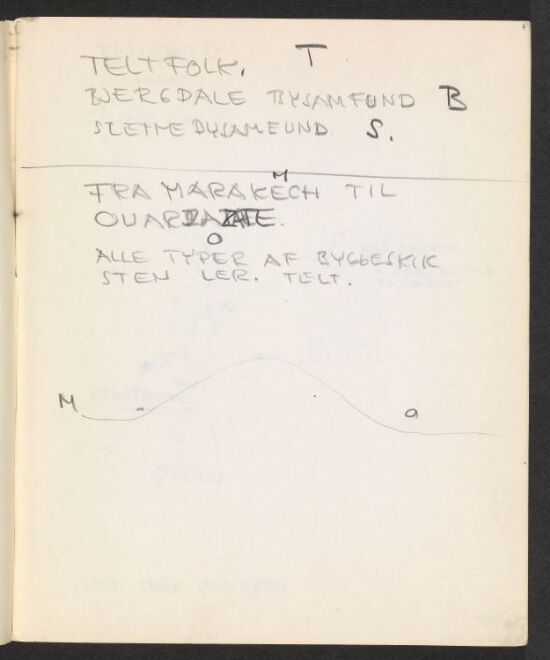 TELTFOLK. T
BJERGDALE BYSAMFUND B
SLETTE BYSAMFUND S.
FRA MARAKECH TIL M
OUARZAZATE.
O
ALLE TYPER AF BYGGESKIK
STEN LER. TELT.
M O